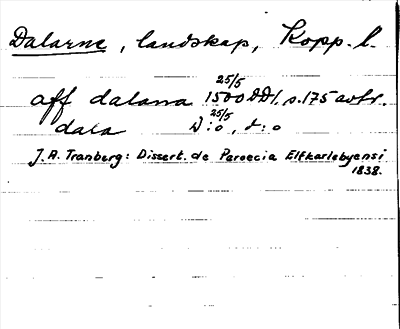 Dalarne, landskap, Kopp. l.
25/5
aff dalarna 1500 DD1. s.175 avtr.
25/5
dala D:o, d:o
J. A. Tranberg: Dissert. de Paroecia Elfkarlebyensi
1838.